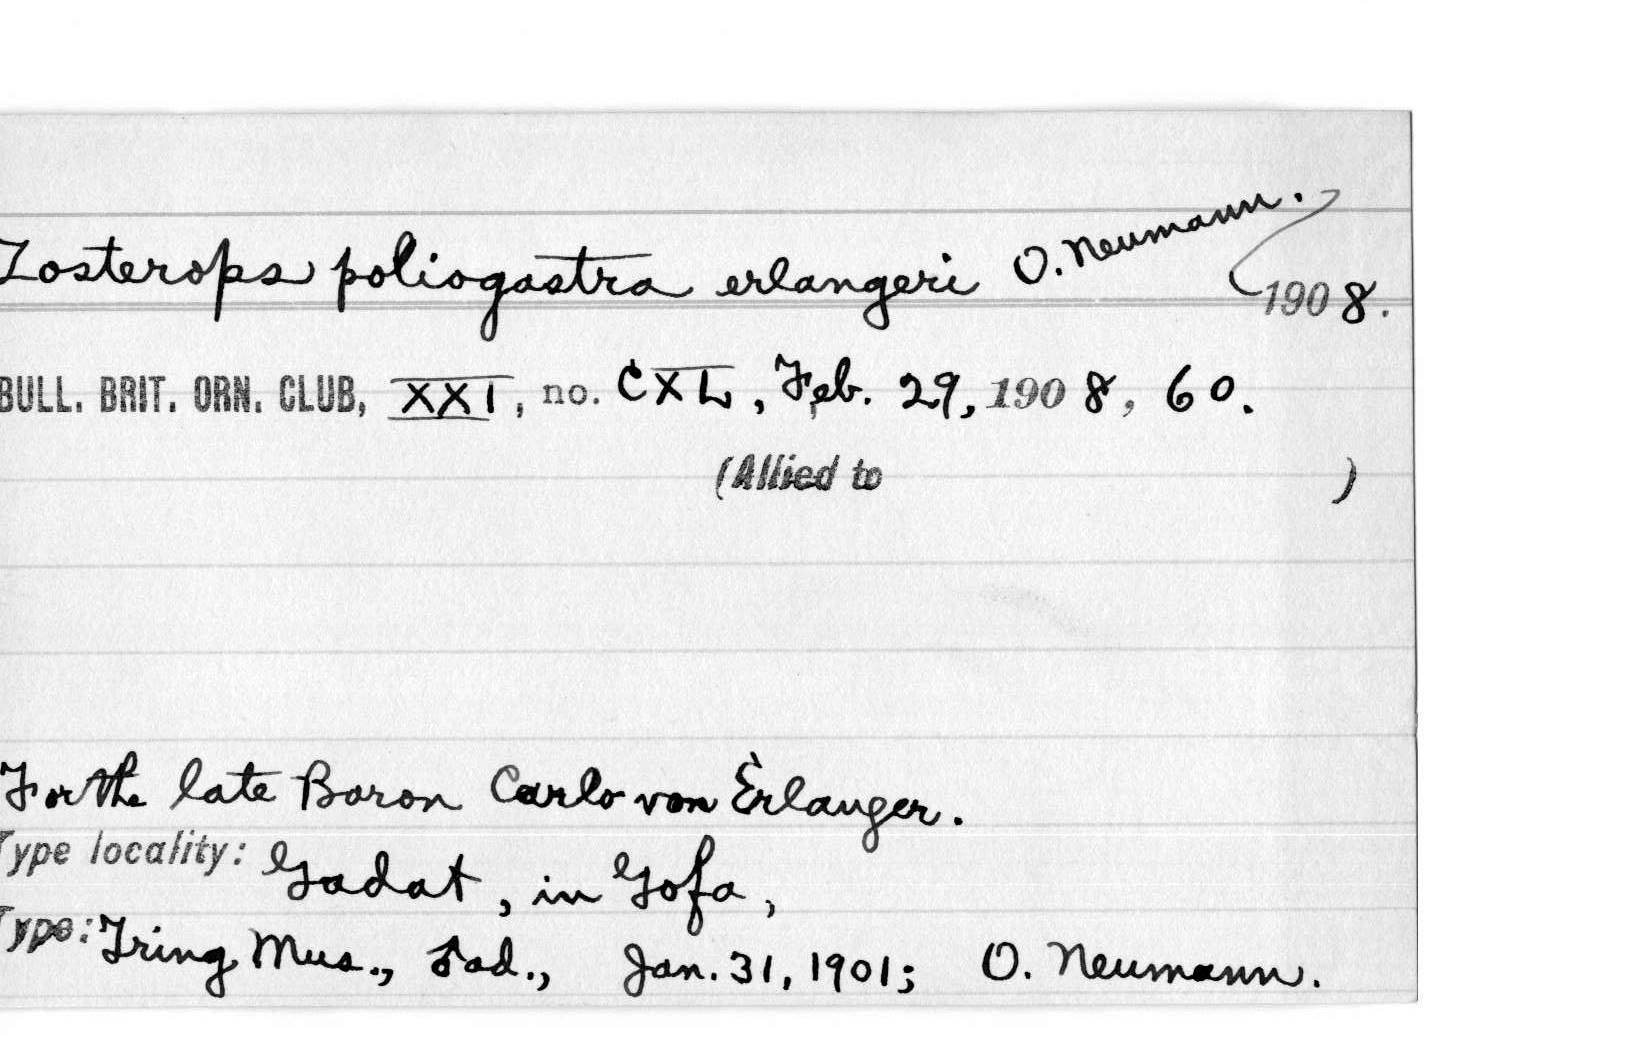 Zosterops poliogastra erlangeri O. Neumann. 1908.
BULL. BRIT. ORN. CLUB, XXI, no. CXL, Feb. 29, 1908, 60.
(Allied to )
For the late Baron Carlo von Erlanger.
Type locality: Gadat, in Gofa,
Type: Tring Mus., ♂ ad., Jan. 31, 1901; O. Neumann.